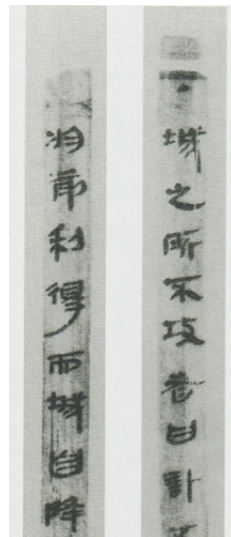 城之所不攻者曰計
於前利得而城自降